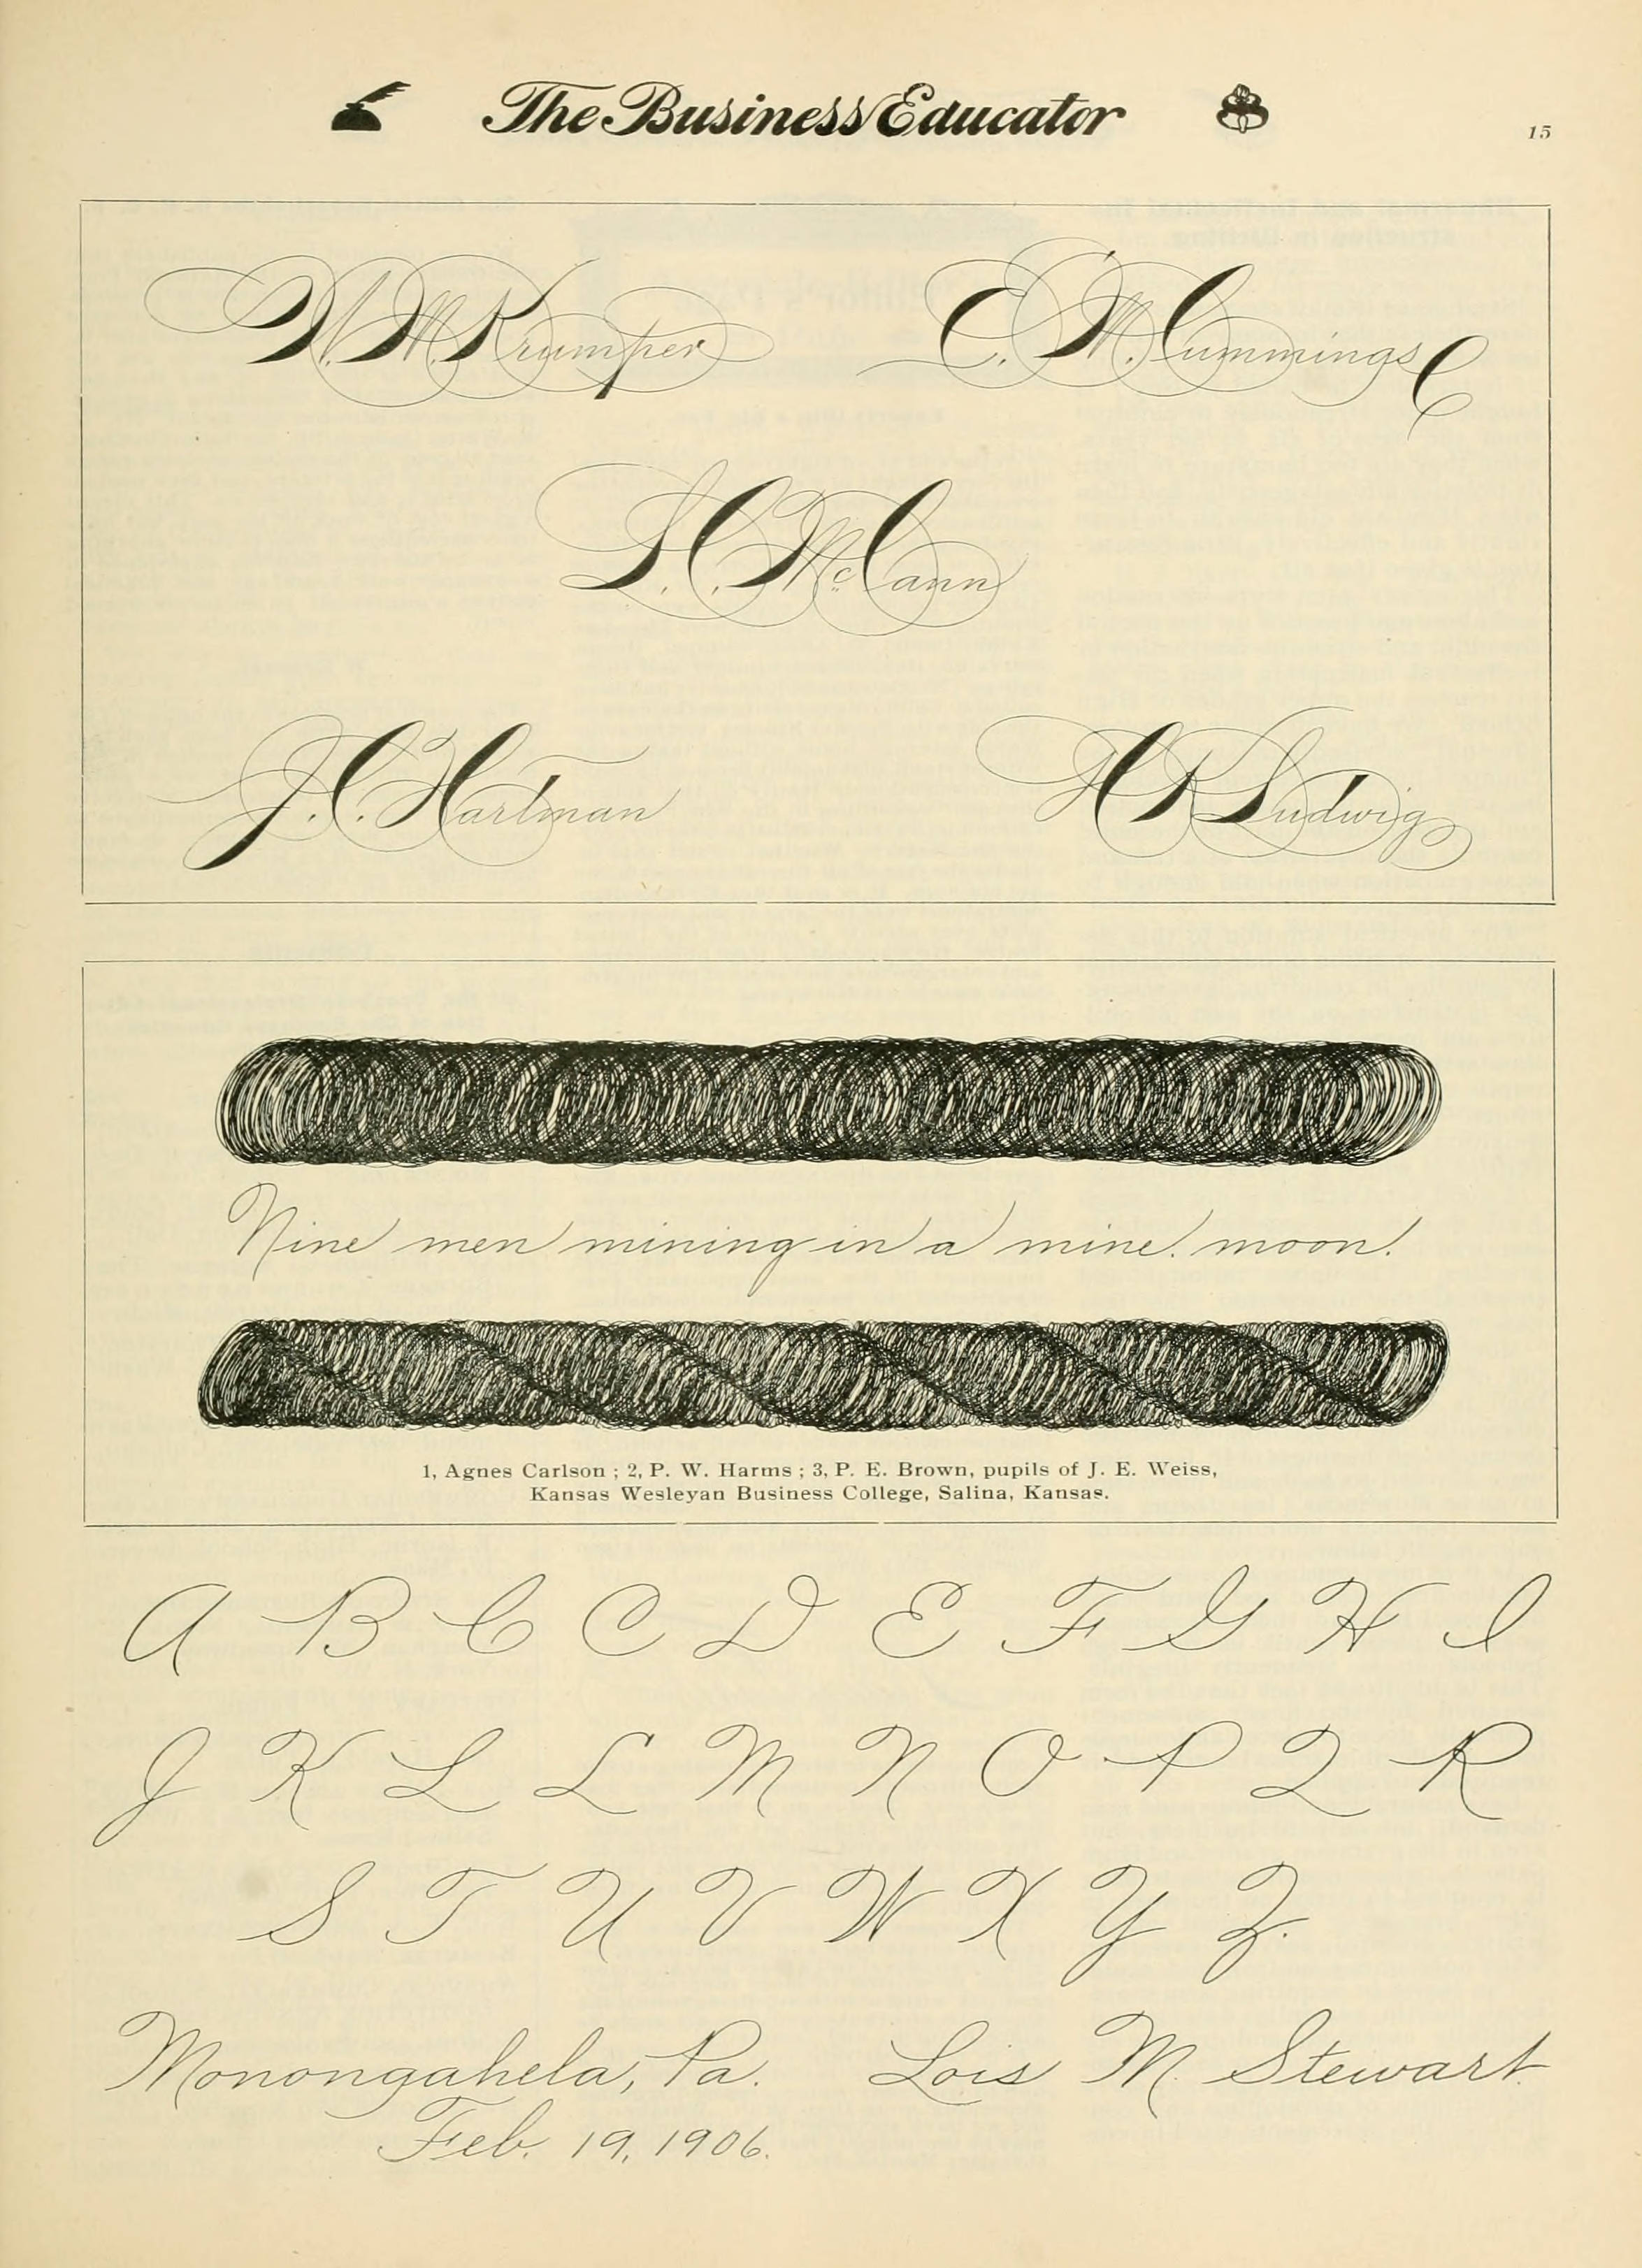 The Business Educator
15
W. M. Krumper
E. M. Cummings
L. C. McCann
J. C. Hartman
H K Ludwig
Nine men mining in a mine. moon.
1, Agnes Carlson ; 2, P. W. Harms ; 3, P. E. Brown, pupils of J. E. Weiss,
Kansas Wesleyan Business College, Salina, Kansas.
A B C C D E F G H I
J K L L M N O P Q R
S T U V W X Y Z.
Monongahela, Pa. Lois M. Stewart.
Feb. 19, 1906.